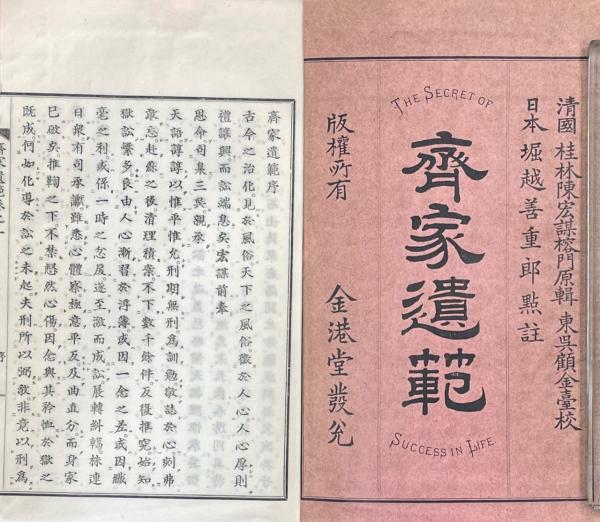 清國 桂林陳宏謀榕門原輯 東吳顧金臺校
日本 堀越善重郎點註
THE SECRET OF
齊家遺範
SUCCESS IN LIFE.
版權所有 金港堂發兌
齊家遺範序
古今之治化見於風俗天下之風俗徵於人心人心厚則
禮讓興而訟端息矣宏謀前奉
恩命司臬三吳親承
天語諄諄以惟平惟允刑期無刑爲訓勉敬誌於心刻弗
敢忘赴蘇之後清理積案不下數千餘件反復推究始知
獄訟繁多良由人心漸習於浮薄或因一念之差或因纖
毫之利或係一時之忿戾遂至激而成訟展轉糾轕株連
日衆有司承讞雖悉心體察極意平反及曲直分而身家
已敝矣推鞫之下不禁慼然心傷因念與其矜恤於獄之
既成何如化導於訟之未起夫刑所以弼敎非竟以刑爲
齊家遺範卷之一